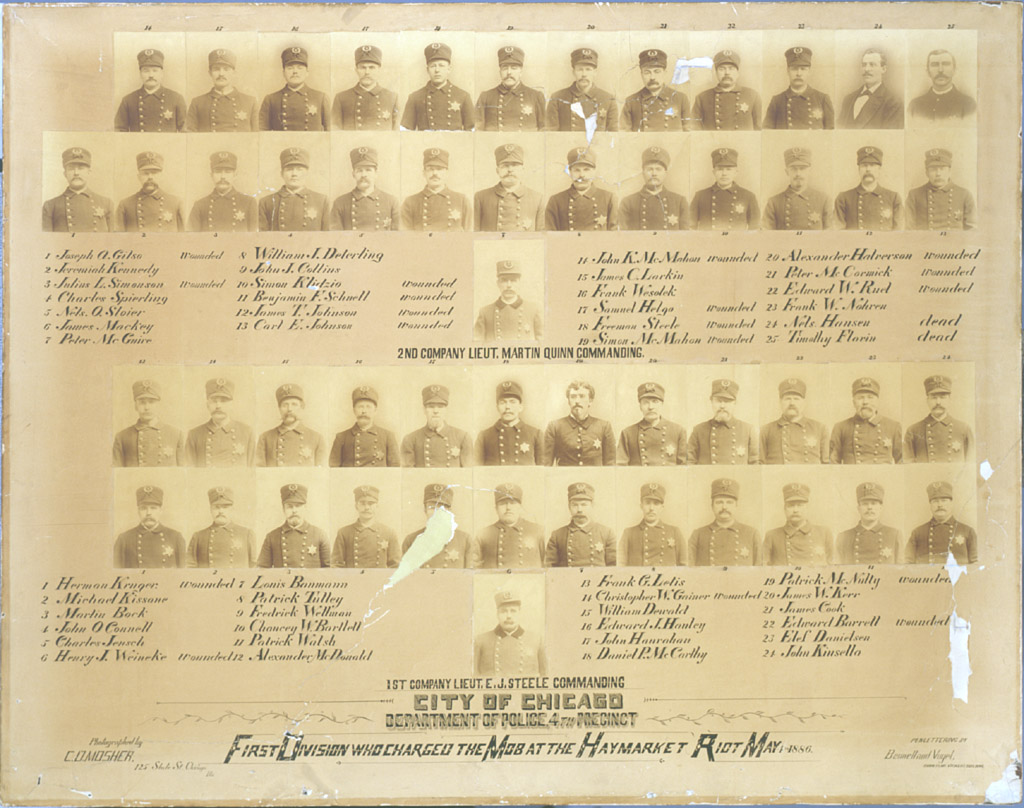 14 15 16 17 18 19 20 21 22 23 24 25
1 2 3 4 5 6 7 8 9 10 11 12 13
1 Joseph O. Gilso wounded
2 Jeremiah Kennedy
3 Julius L. Simonson wounded
4 Charles Spierling
5 Nels. O. Sloier
6 James Mackey
7 Peter Mc Guire
8 William J. Deterling
9 John J. Collins
10 Simon Klidzio wounded
11 Benjamin F. Schnell wounded
12 James T. Johnson wounded
13 Carl E. Johnson wounded
14 John K. Mc Mahon wounded
15 James C. Larkin
16 Frank Wesolek
17 Samuel Helgo wounded
18 Freeman Steele wounded
19 Simon Mc Mahon wounded
20 Alexander Halverson wounded
21 Peter Mc Cormick wounded
22 Edward W. Ruel wounded
23 Frank W. Nohren
24 Nels. Hansen dead
25 Timothy Flavin dead
2ND COMPANY LIEUT. MARTIN QUINN COMMANDING.
1 Herman Kruger wounded
2 Michael Kissane
3 Martin Bock
4 John O'Connell
5 Charles Jensch
6 Henry J. Weineke wounded
7 Louis Banmann
8 Patrick Talley
9 Fedrick Wellman
10 Chancey W. Bartlett
11 Patrick Walsh
12 Alexander McDonald
13 Frank G. Letis
14 Christopher W. Gainer wounded
15 William Dewald
16 Edward J. Hanley
17 John Hanrahan
18 Daniel P. McCarthy
19 Patrick Mc Nulty wounded
20 James W. Kerr
21 James Cook
22 Edward Barrett wounded
23 Elef Danielsen
24 John Kinsella
1ST COMPANY LIEUT. E. J. STEELE COMMANDING
CITY OF CHICAGO
DEPARTMENT OF POLICE, 4TH PRECINCT
FIRST DIVISION WHO CHARGED THE MOB AT THE HAYMARKET RIOT MAY 4-1886.
Photographed by
C.D. MOSHER.
125 State St. Chicago
PENLETTERING BY
Bramell and Vogel.